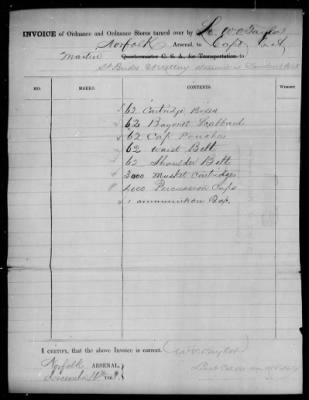 INVOICE of Ordnance and Ordnance Stores turned over by Lt. W. C. Taylor
Norfolk Arsenal, to Capt.
Quartermaster C. S. A., for Transportation to
St Brides
NO. MARKS. CONTENTS. WEIGHT.
62 Cartridge Boxes
62 Bayonet Scabbard
62 Cap Pouches
62 Waist Belt
62 Shoulder Belt
3000 Musket Cartridges
4000 Percussion Caps
1 ammunition Box
I CERTIFY, that the above Invoice is correct.
Norfolk ARSENAL,
December